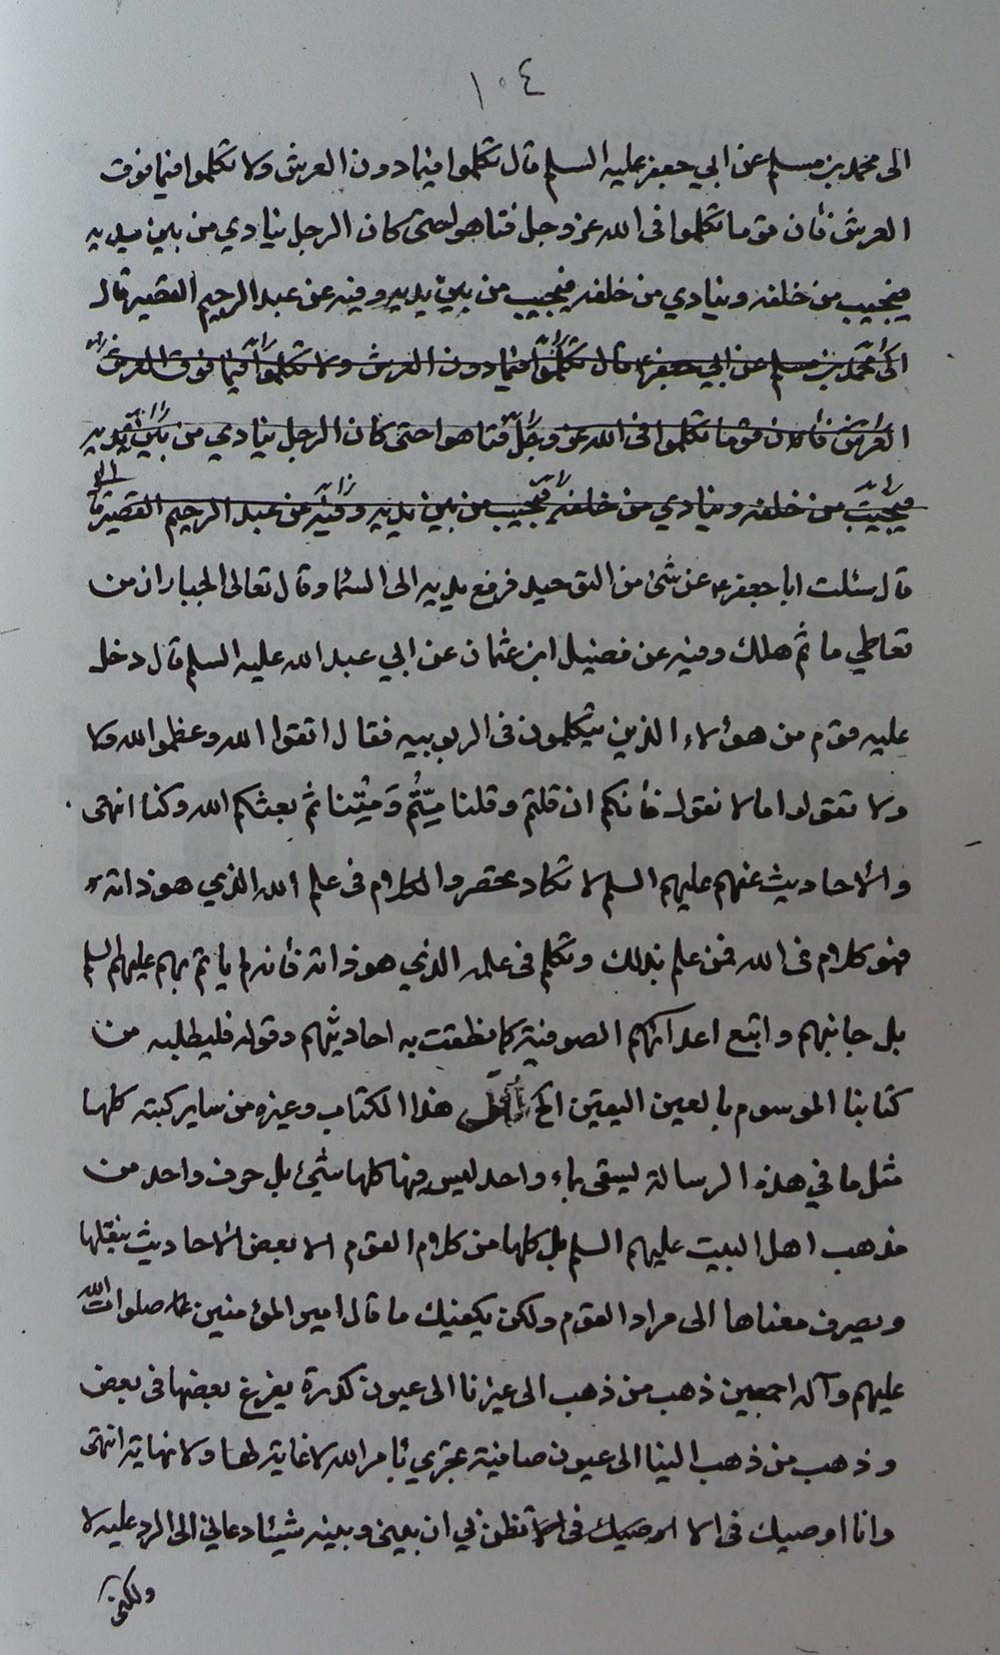 ١٠٤
الى محمد بن مسلم عن ابي جعفر عليه السلم قال تكلموا فيما دون العرش ولا تكلموا فيما فوق
العرش فأن قوما تكلموا فى الله عز وجل فتاهوا حتى كان الرجل ينادي من بين يديه
فيجيب من خلفه وينادي من خلفه فيجيب من بين يديه وفيه عن عبد الرحيم القصير قال
الى محمد بن مسلم عن ابي جعفر ع قال تكلموا فيما دون العرش ولا تكلموا فيما فوق العرش
العرش فأن قوما تكلموا فى الله عز وجل فتاهوا حتى كان الرجل ينادي من بين يديه
فيجيب من خلفه وينادي من خلفه فيجيب من بين يديه وفيه عن عبد الرحيم القصير
قال سئلت ابا جعفر ع عن شئ من التوحيد فرفع يديه الى السما وقال تعالى الجبار ان من
تعاطي ما ثم هلك وفيه عن فضيل ابن عثمان عن ابي عبد الله عليه السلم قال دخل
عليه قوم من هؤلاء الذين يتكلمون فى الربوبيه فقال اتقوا الله وعظموا الله ولا
ولا تقولوا ما لا نقول فأنكم ان قلتم وقلنا مِتُّم وَمِتْنا ثم بعثكم الله وكنا انتهى
والأحاديث عنهم عليهم السلم لا تكاد تحصر والكلام فى علم الله الذي هو ذاته
فهو كلام فى الله فمن علم بذلك وتكلم فى علمه الذي هو ذاته فأنه لم يأتم بهم عليهم السلم
بل جانبهم واتبع اعدائهم الصوفية كما نطقت به احاديثهم وقوله فليطلبه من
كتابنا الموسوم بالعين اليقين الخ هذا الكتاب وغيره من ساير كتبه كلها
مثل ما في هذه الرسالة ليسقى بماء واحد ليس فيها كلها شئ بل حرف واحد من
مذهب اهل البيت عليهم السلم بل كلها من كلام القوم الا بعض الأحاديث ينقلها
ويصرف معناها الى مراد القوم ولكن يكفيك ما قال امير المؤمنين صلوات الله
عليهم وآله اجمعين ذهب من ذهب الى غيرنا الى عيون كدرة يفرغ بعضها فى بعض
وذهب من ذهب الينا الى عيون صافية تجري بأمر الله لا غاية لها ولا نهاية انتهى
وانا اوصيك فى الا اوصيك فى الا تظن بي ان بيني وبينه شيئا دعاني الى الرد عليه لا
ولكني